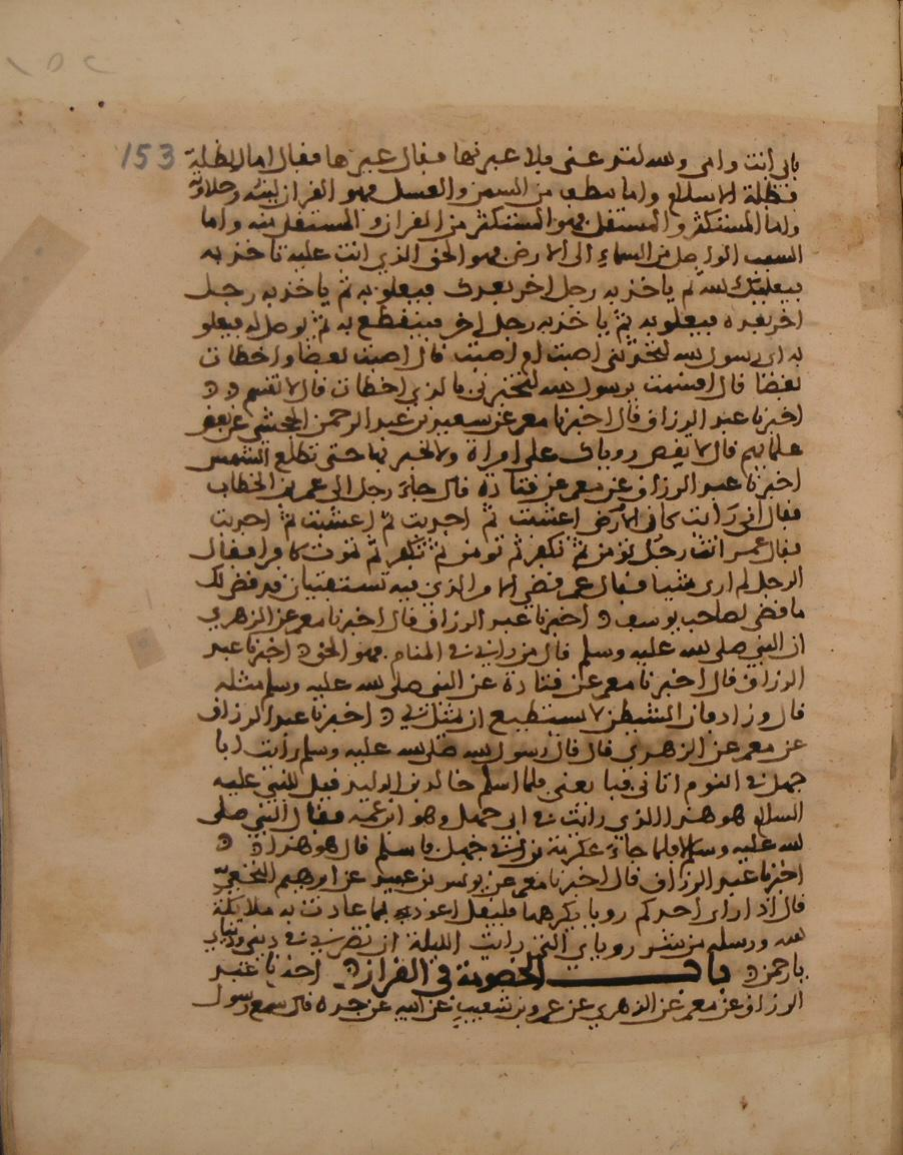 ١٥٢
153
بابي أنت وامي والله لتدعني فلاعبرنها فقال عبرها فقال اما الظلة
فظلة الاسلام واما ينطف من السمن والعسل فهو القران لينه وحلاوته
واما المستكثر والمستقل فهو المستكثر من القران والمستقل منه واما
السبب الواصل من السماء الى الارض فهو الحق الذي انت عليه تاخذ به
فيعليك الله ثم ياخذ به رجل اخر بعدك فيعلو به ثم ياخذ به رجل
اخر بعده فيعلو به ثم ياخذ به رجل اخر فينقطع به ثم يوصل له فيعلو
به اي رسول الله لتحدثني اصبت ام اخطات قال اصبت بعضا واخطات
بعضا قال اقسمت يرسول الله لتخبرني مالذي اخطات قال لا تقسم
اخبرنا عبد الرزاق قال اخبرنا معمر عن سعيد بن عبد الرحمن الجحشي عن بعض
علمائهم قال لا يقص روياك على امراة ولا تخبر بها حتى تطلع الشمس
اخبرنا عبد الرزاق عن معمر عن قتادة قال جاء رجل الى عمر بن الخطاب
فقال اني رايت كان الارض اعشبت ثم اجدبت ثم اعشبت ثم اجدبت
فقال عمر انت رجل تؤمن ثم تكفر ثم تومن ثم تكفر ثم تموت كافرا فقال
الرجل لم ارى شيا فقال عمر قضي الامر الذي فيه تستفتيان قد قضي لك
ما قضي لصاحب يوسف اخبرنا عبد الرزاق قال اخبرنا معمر عن الزهري
ان النبي صلى الله عليه وسلم قال من راني في المنام فهو الحق اخبرنا عبد
الرزاق قال اخبرنا معمر عن قتادة عن النبي صلى الله عليه وسلم مثله
قال وزاد فان الشيطن لا يستطيع ان يتمثل بي اخبرنا عبد الرزاق
عن معمر عن الزهري قال قال رسول الله صلى الله عليه وسلم رايت ابا
جهل في النوم اتاني فبايعني فلما اسلم خالد بن الوليد قيل للنبي عليه
السلام هو هذا الذي رايت في ابي جهل وهو ابن عمه فقال النبي صلى
الله عليه وسلم لا فلما جاء عكرمة بن ابي جهل فاسلم قال هو هذا
اخبرنا عبد الرزاق قال اخبرنا معمر عن يونس بن عبيد عن ابرهيم النخعي
قال اذا راى احدكم رويا يكرهها فليقل اعوذ بما عاذت به ملايكة
الله ورسله من شر روياي التي رايت الليلة ان تضرني في ديني ودنياي
يا رحمن باب الخصومة في القران اخبرنا عبد
الرزاق عن معمر عن الزهري عن عمرو بن شعيب عن ابيه عن جده قال سمع رسول